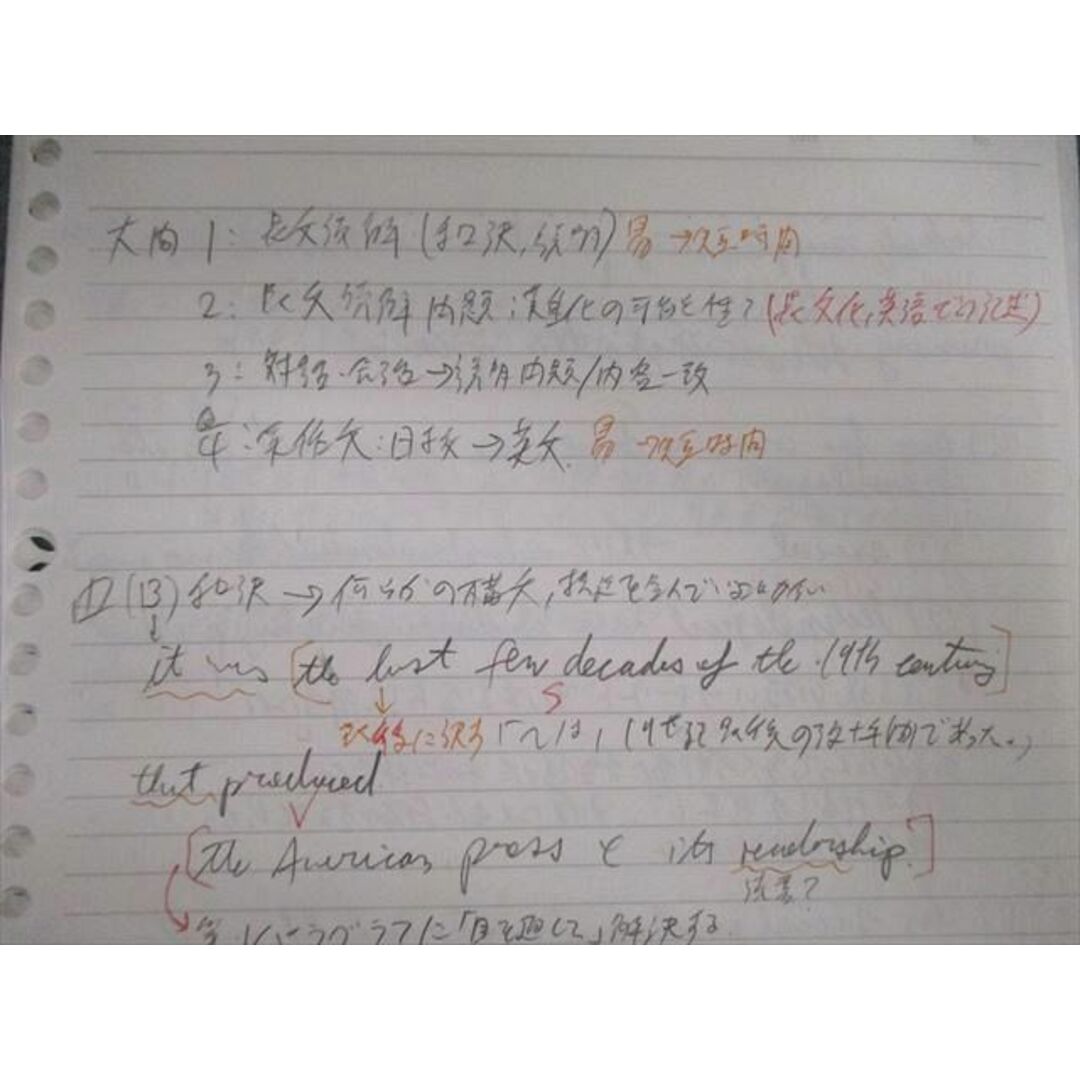 大問1: 長文読解(和訳,説明) 易→短時間
2: 長文読解問題:難化の可能性?(長文化,英語での記述)
3: 対話・会話→説明問題/内容一致
4:英作文:日本文→英文. 易→短時間
(B)和訳→何らかの構文,
it was [the last few decades of the 19th century]
S
最後に訳す「〜は,19世紀最後の数十年間であった。」
that produced
V
[the American press & its readership.]
読書?
パラグラフに「目を通して」解決する